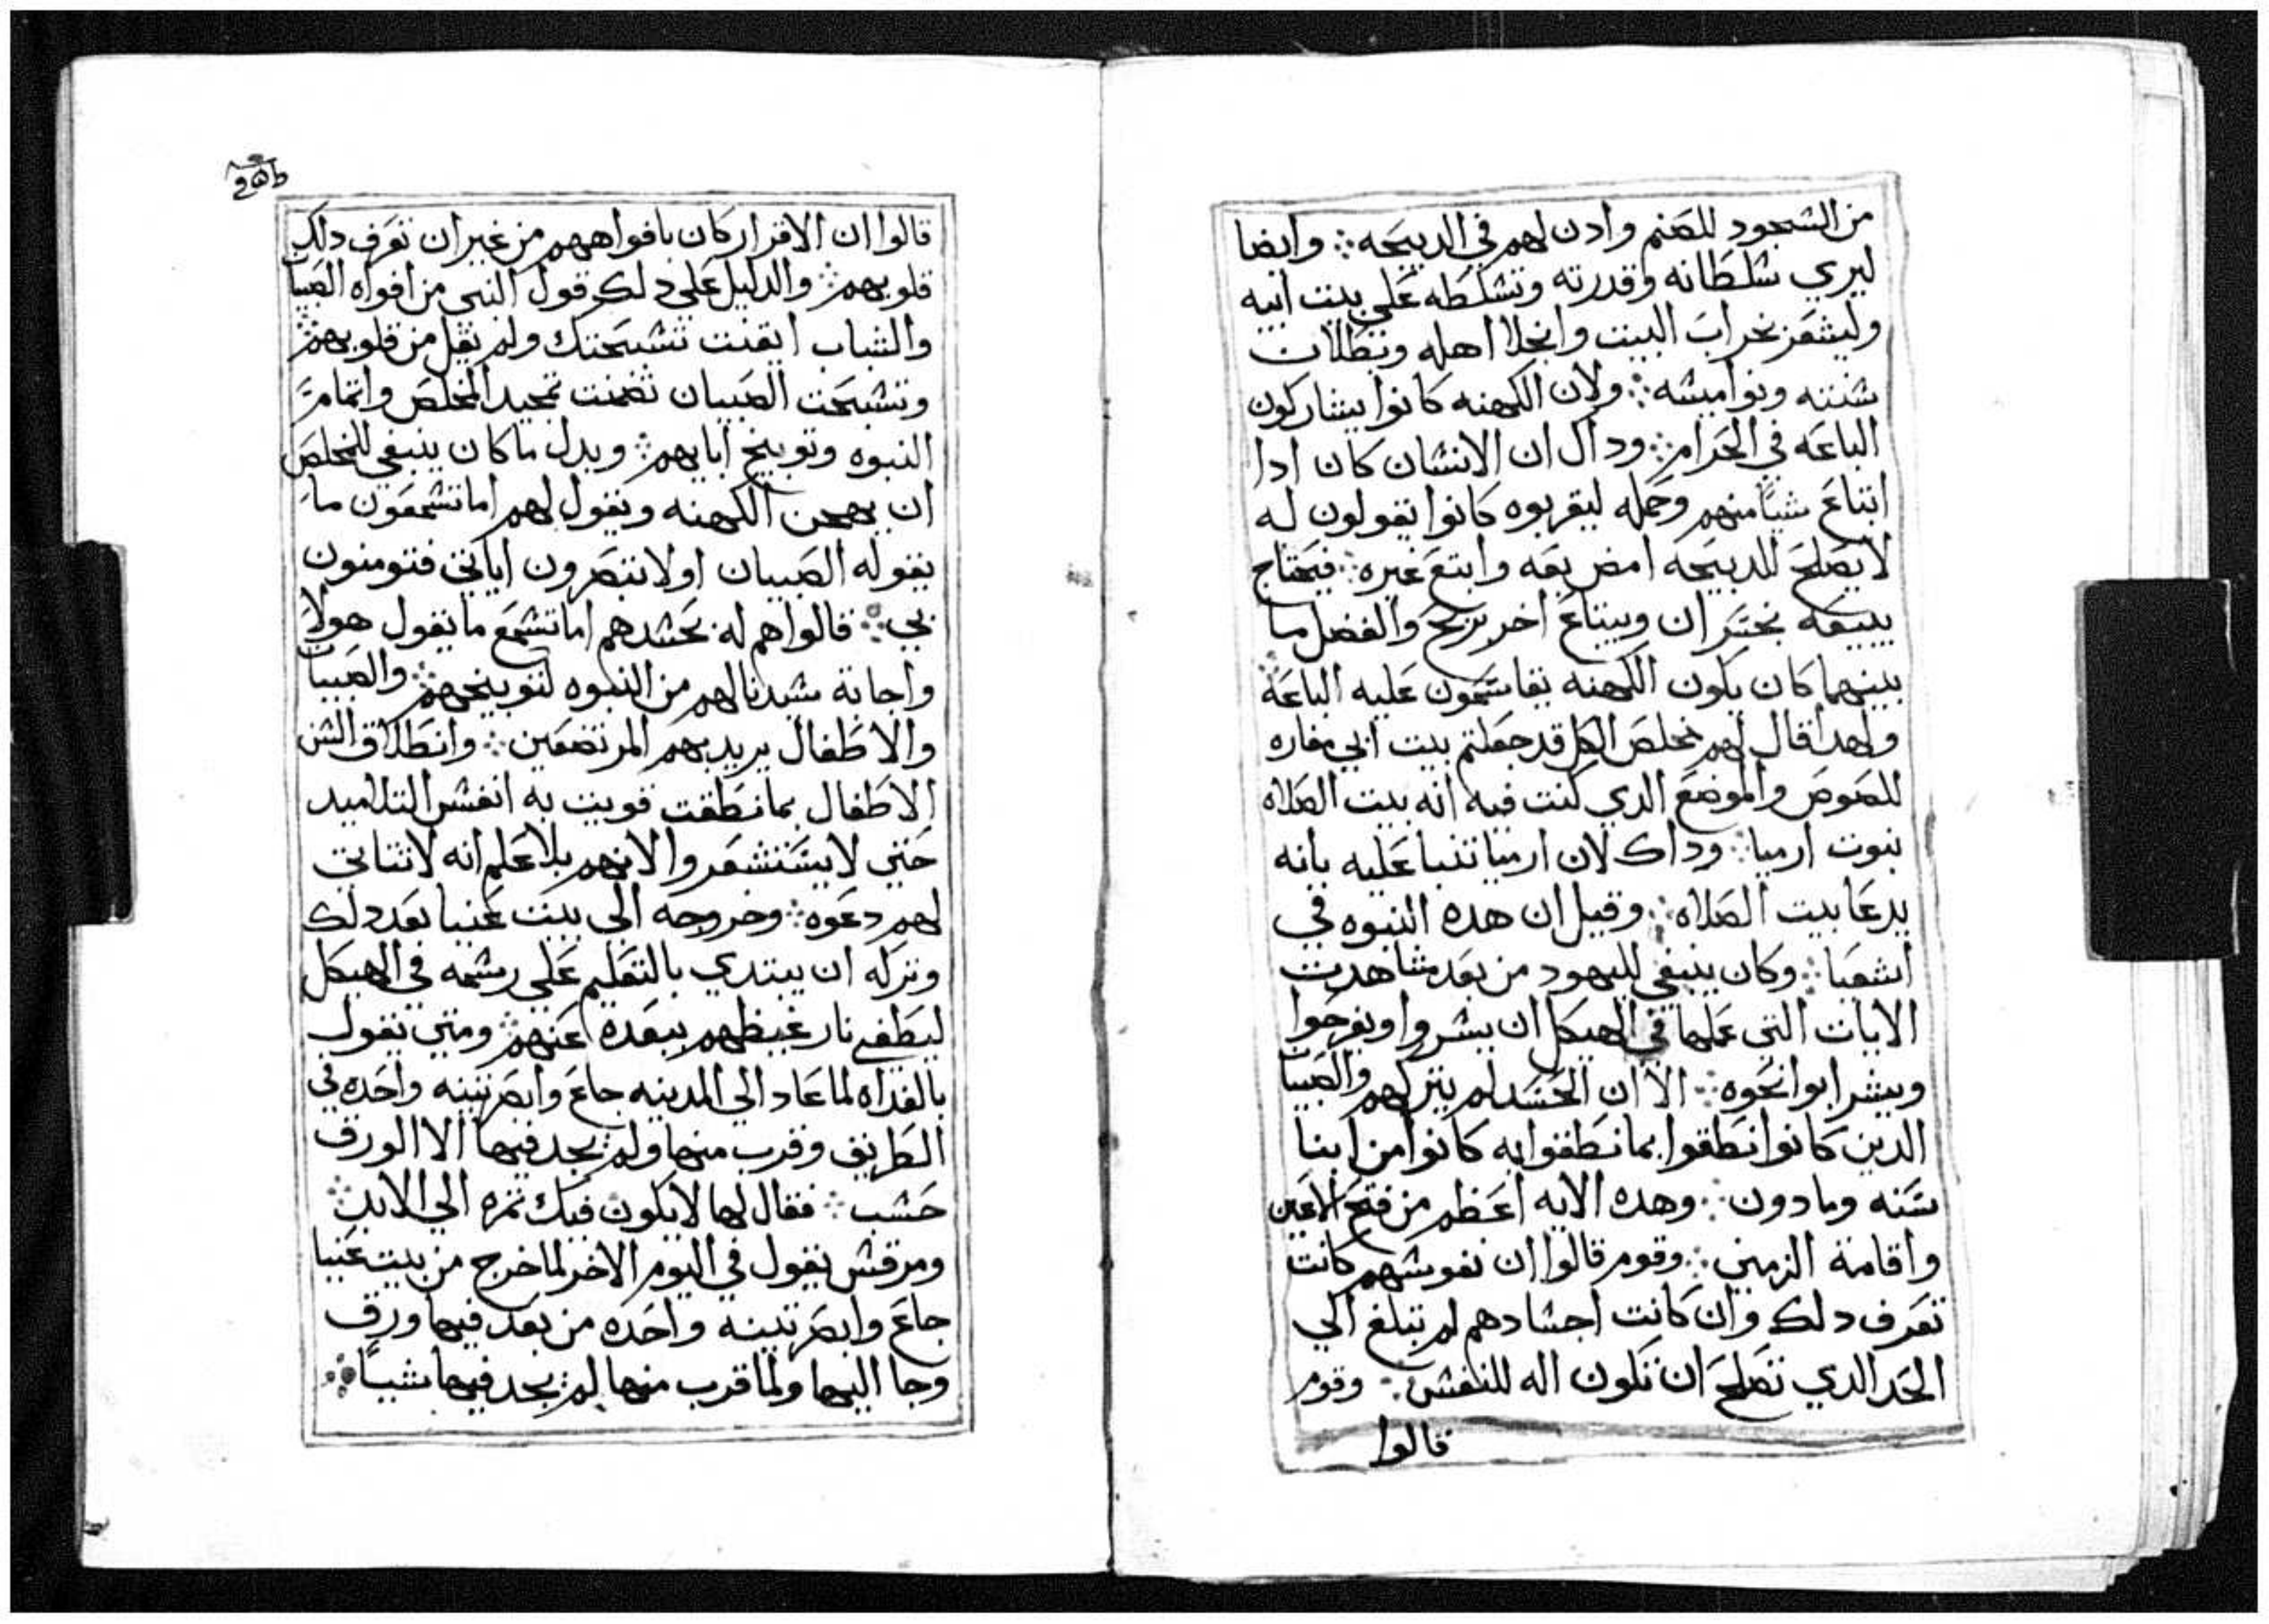 من الشجود للصنم وادن لهم في الدبيحه ⁘ وايضا
ليري شلطانه وقدرته وتشلطه علي بيت ابيه
وليشعر بخراب البيت وانجلا اهله وبطلان
شننه ونواميشه ⁘ ولان الكهنه كانوا يشاركون
الباعه في الحرام ⁘ وداك ان الانشان كان ادا
ابتاع شيًا منهم وحمله ليقربوه كانوا يقولون له
لا يصلح للدبيحه امض بعه وابتع غيره ⁘ فيحتاج
يبيعه بخسران ويبتاع اخر بربح والفضل ما
بينهما كان يكون الكهنه يقاسمون عليه الباعه ⁘
ولهدا قال لهم مخلص الكل قد جعلتم بيت ابي مغاره
للصوص والموضع الدي كتب فيه انه بيت الصلاه
نبوت ارميا ⁘ وداك لان ارميا تنبا عليه بانه
يدعا بيت الصلاه ⁘ وقيل ان هده النبوه في
اشعيا ⁘ وكان ينبغي لليهود من بعد مشاهدت
الايات التي عملها في الهيكل ان يشروا ويفرحوا
ويشرابوا نحوه ⁘ الا ان الحسد لم يتركهم والصبيان
الدين كانوا نطقوا بما نطقوا به كانوا من ابنا
سنه وما دون ⁘ وهده الايه اعظم من فتح الاعين
واقامة الزمني ⁘ وقوم قالوا ان نفوشهم كانت
تعرف دلك وان كانت اجشادهم لم تبلغ الي
الحد الدي تصلح ان تكون اله للنفش ⁘ وقوم
قالوا
قالوا ان الاقرار كان بافواههم من غير ان تعرف دلك
قلوبهم ⁘ والدليل علي دلك قول النبي من افواه الصبيان
والشباب اتقنت تشبحتك ولم يقل من قلوبهم ⁘
وتشبحت الصبيان تضمنت تمجيد المخلص واتمام
النبوه وتوبيخ ابايهم ⁘ وبدل ما كان ينبغي للمخلص
ان يهجن الكهنه ويقول لهم اما تشمعون ما
يقوله الصبيان اولا تبصرون اياتي فتومنون
بي ⁘ قالوا هم له بحشدهم اما تشمع ما يقول هولا
واجابة شيدنا لهم من النبوه لتوبيخهم ⁘ والصبيان
والاطفال يريد بهم المرتضعين ⁘ وانطلاق الشن
الاطفال بما نطقت قويت به انفش التلاميد
حتي لا يستشعروا لانهم بلا علم انه لا تتاتي
لهم دعوه ⁘ وخروجه الي بيت عنيا بعد دلك
وتركه ان يبتدي بالتعليم علي رشمه في الهيكل
ليطفي نار غيظهم ببعده عنهم ⁘ ومتي يقول
بالغداه لما عاد الي المدينه جاع وابصر تينه واحده في
الطريق وقرب منها ولم يجد فيها الا الورق
حشب ⁘ فقال لها لا يكون فيك تمره الي الابد ⁘
ومرقش يقول في اليوم الاخر لما خرج من بيت عنيا
جاع وابصر تينه واحده من بعد فيها ورق
وجا اليها ولما قرب منها لم يجد فيها شيًا ⁘